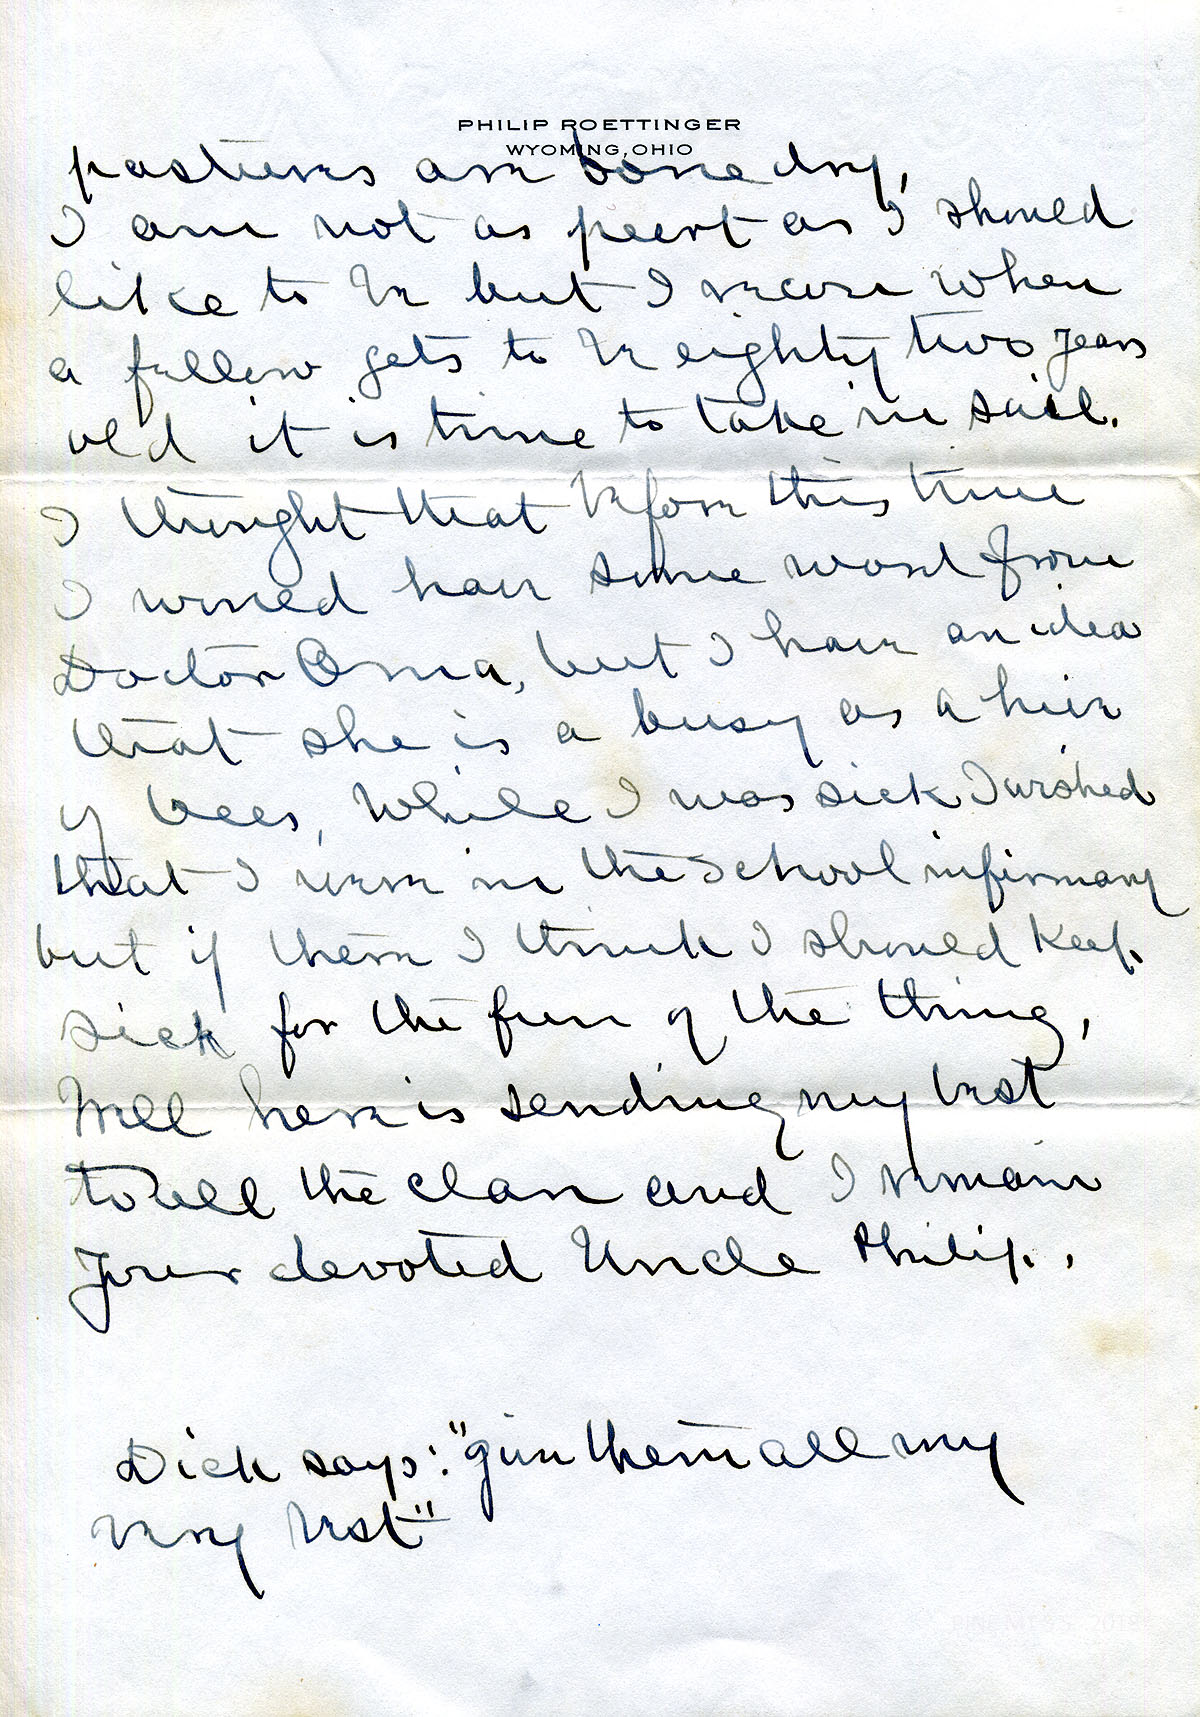 PHILIP ROETTINGER
WYOMING, OHIO
pastures are bone dry,
I am not as peert as I should
like to be but I when
a fellow gets to be eighty two years
old it is time to take in sail.
I thought that before this time
I would have some word from
Doctor Oma, but I have an idea
that she is a busy as a hive
of bees, While I was sick I wished
that I were in the school infirmary
but if there I think I should keep
sick for the fun of the thing,
Well here is sending my best
to all the clan and I remain
Your devoted Uncle Philip.,
Dick says: "give them all my
very best"